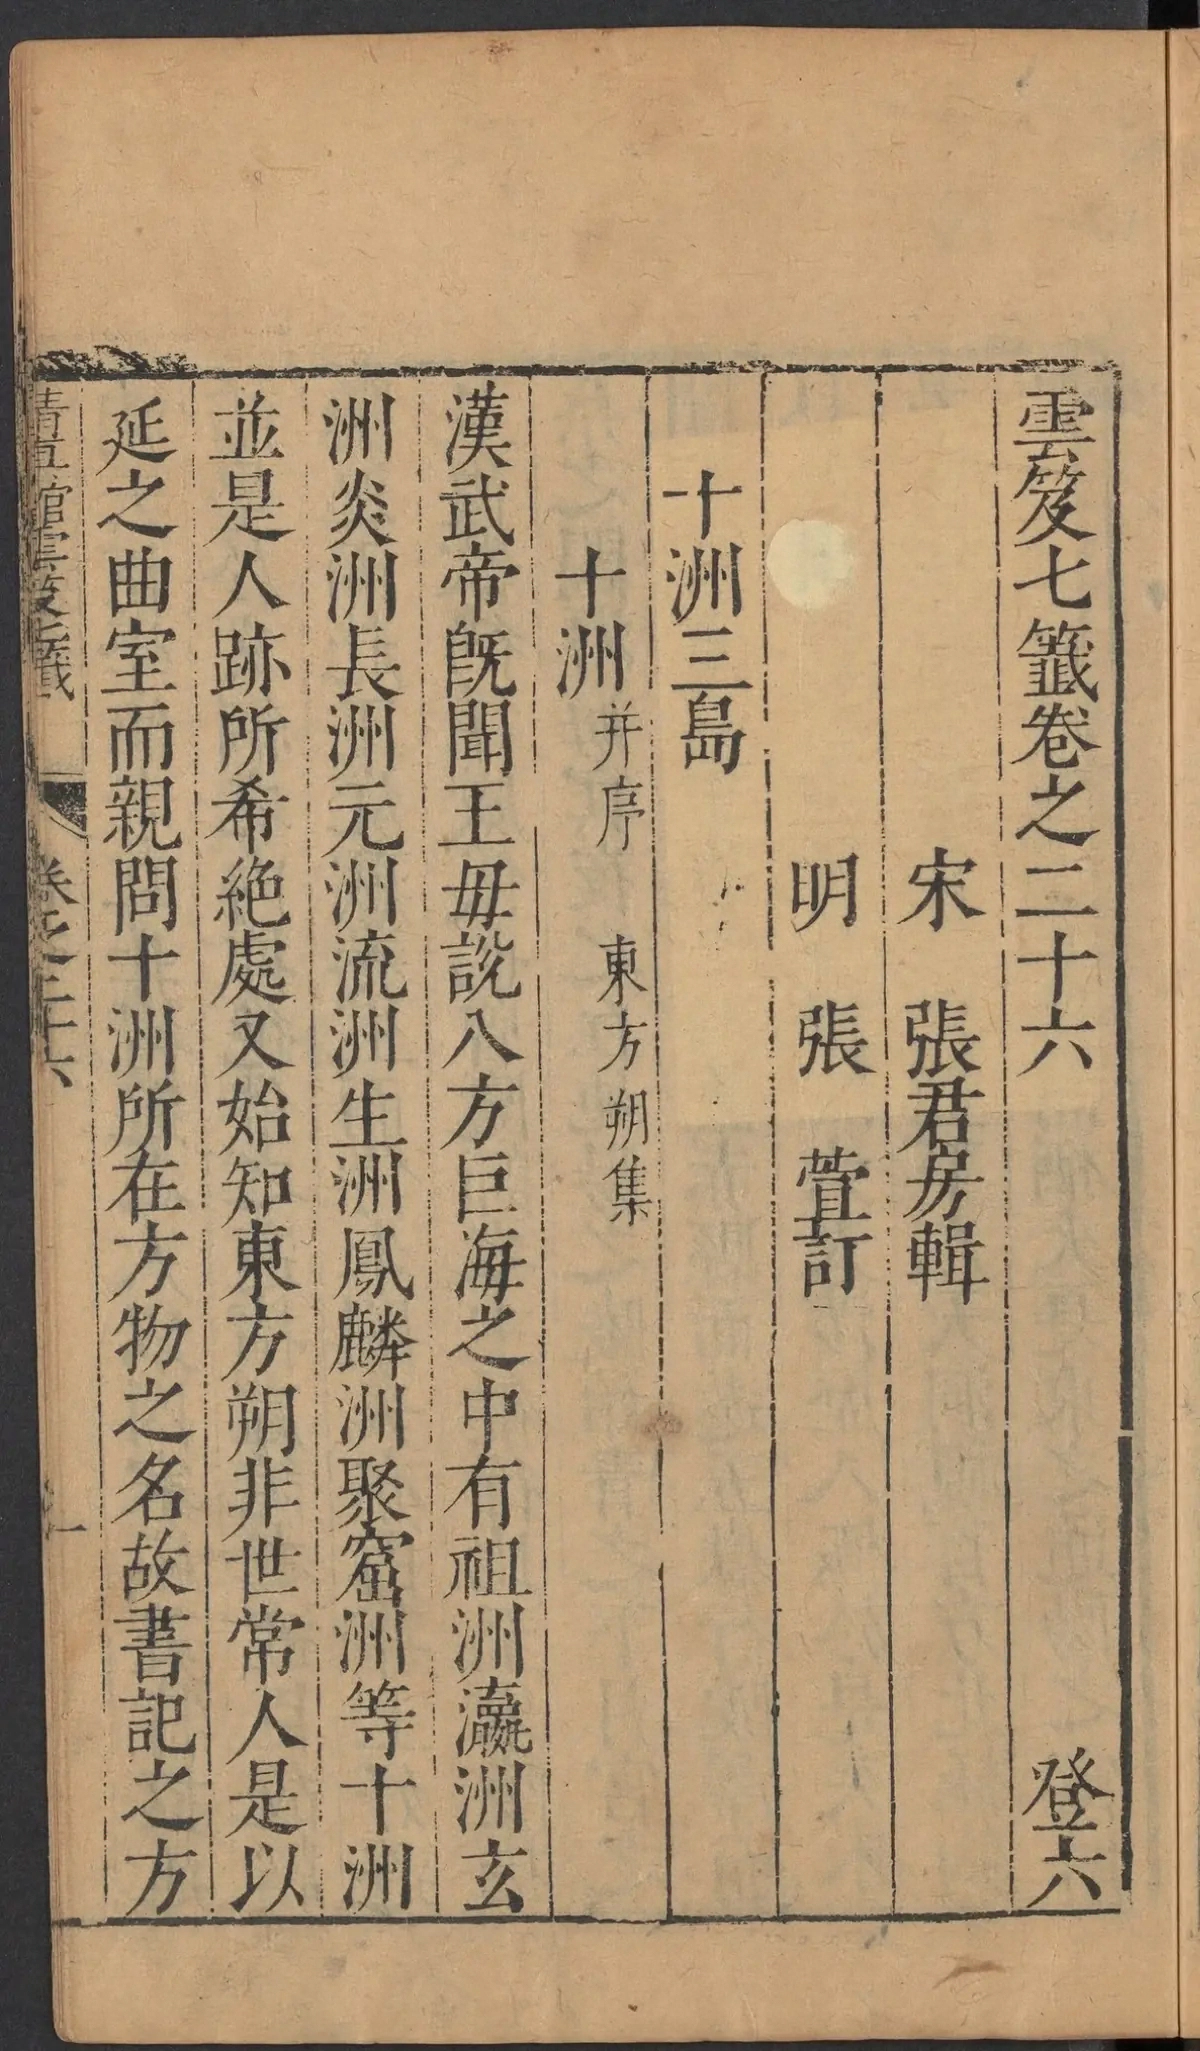 雲笈七籤卷之二十六 登六
宋 張君房輯
明 張萱訂
十洲三島
十洲并序 東方朔集
漢武帝旣聞王毋說八方巨海之中有祖洲瀛洲玄
洲炎洲長洲元洲流洲生洲鳳麟洲聚窟洲等十洲
並是人跡所希絶處又始知東方朔非世常人是以
延之曲室而親問十洲所在方物之名故書記之方
清真館雲笈七籤 卷之二十六 一